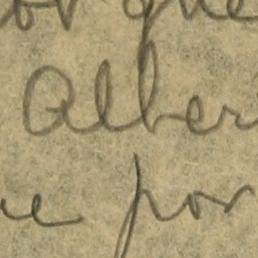 or que
Alber
ue por